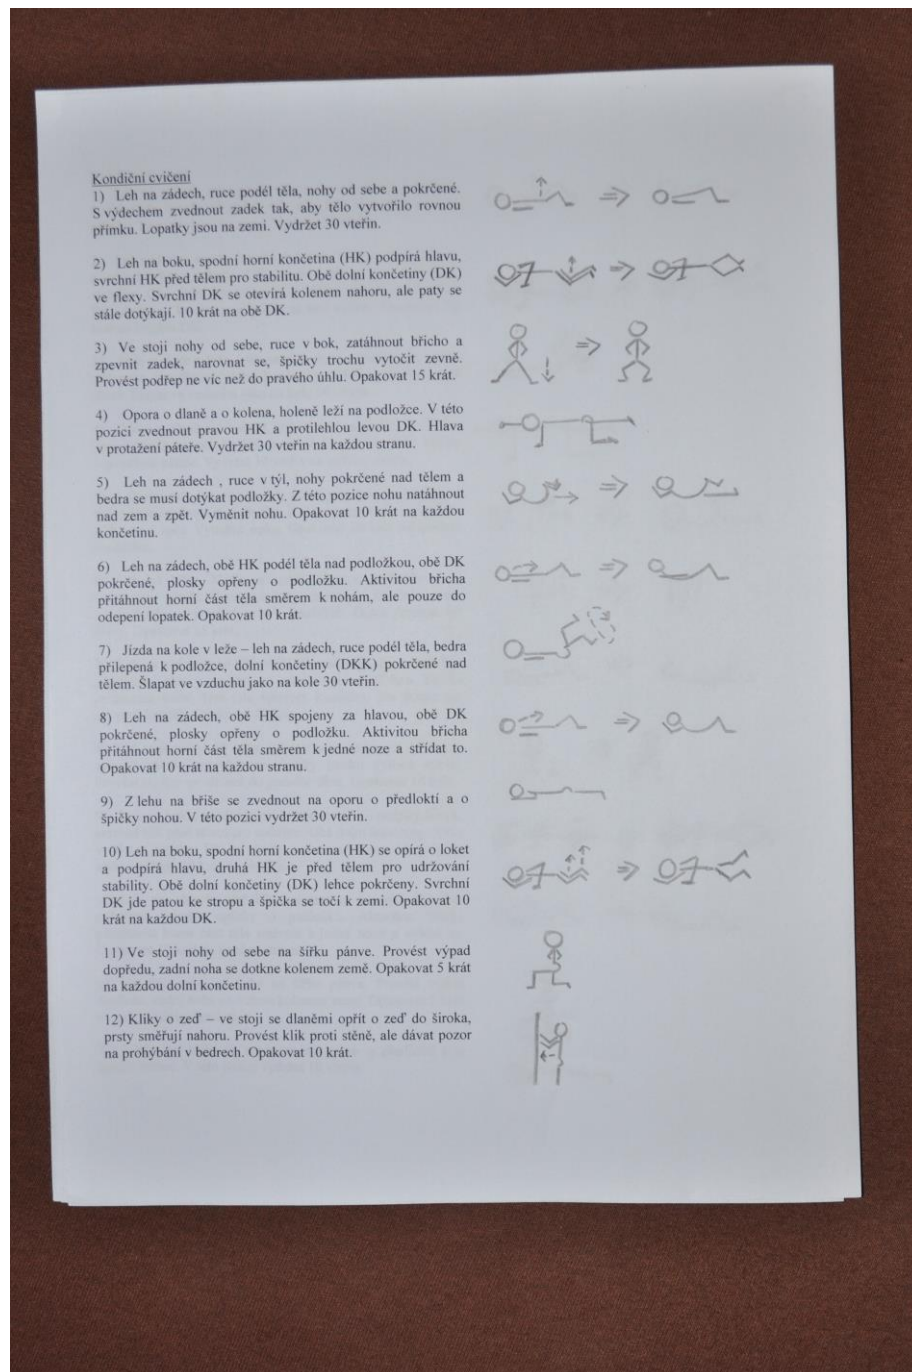 Kondiční cvičení
1) Leh na zádech, ruce podél těla, nohy od sebe a pokrčené.
S výdechem zvednout zadek tak, aby tělo vytvořilo rovnou
přímku. Lopatky jsou na zemi. Vydržet 30 vteřin.
2) Leh na boku, spodní horní končetina (HK) podpírá hlavu,
svrchní HK před tělem pro stabilitu. Obě dolní končetiny (DK)
ve flexy. Svrchní DK se otevírá kolenem nahoru, ale paty se
stále dotýkají. 10 krát na obě DK.
3) Ve stoji nohy od sebe, ruce v bok, zatáhnout břicho a
zpevnit zadek, narovnat se, špičky trochu vytočit zevně.
Provést podřep ne víc než do pravého úhlu. Opakovat 15 krát.
4) Opora o dlaně a o kolena, holeně leží na podložce. V této
pozici zvednout pravou HK a protilehlou levou DK. Hlava
v protažení páteře. Vydržet 30 vteřin na každou stranu.
5) Leh na zádech , ruce v týl, nohy pokrčené nad tělem a
bedra se musí dotýkat podložky. Z této pozice nohu natáhnout
nad zem a zpět. Vyměnit nohu. Opakovat 10 krát na každou
končetinu.
6) Leh na zádech, obě HK podél těla nad podložkou, obě DK
pokrčené, plosky opřeny o podložku. Aktivitou břicha
přitáhnout horní část těla směrem k nohám, ale pouze do
odepení lopatek. Opakovat 10 krát.
7) Jízda na kole v leže – leh na zádech, ruce podél těla, bedra
přilepená k podložce, dolní končetiny (DKK) pokrčené nad
tělem. Šlapat ve vzduchu jako na kole 30 vteřin.
8) Leh na zádech, obě HK spojeny za hlavou, obě DK
pokrčené, plosky opřeny o podložku. Aktivitou břicha
přitáhnout horní část těla směrem k jedné noze a střídat to.
Opakovat 10 krát na každou stranu.
9) Z lehu na břiše se zvednout na oporu o předloktí a o
špičky nohou. V této pozici vydržet 30 vteřin.
10) Leh na boku, spodní horní končetina (HK) se opírá o loket
a podpírá hlavu, druhá HK je před tělem pro udržování
stability. Obě dolní končetiny (DK) lehce pokrčeny. Svrchní
DK jde patou ke stropu a špička se točí k zemi. Opakovat 10
krát na každou DK.
11) Ve stoji nohy od sebe na šířku pánve. Provést výpad
dopředu, zadní noha se dotkne kolenem země. Opakovat 5 krát
na každou dolní končetinu.
12) Kliky o zeď – ve stoji se dlaněmi opřít o zeď do široka,
prsty směřují nahoru. Provést klik proti stěně, ale dávat pozor
na prohýbání v bedrech. Opakovat 10 krát.